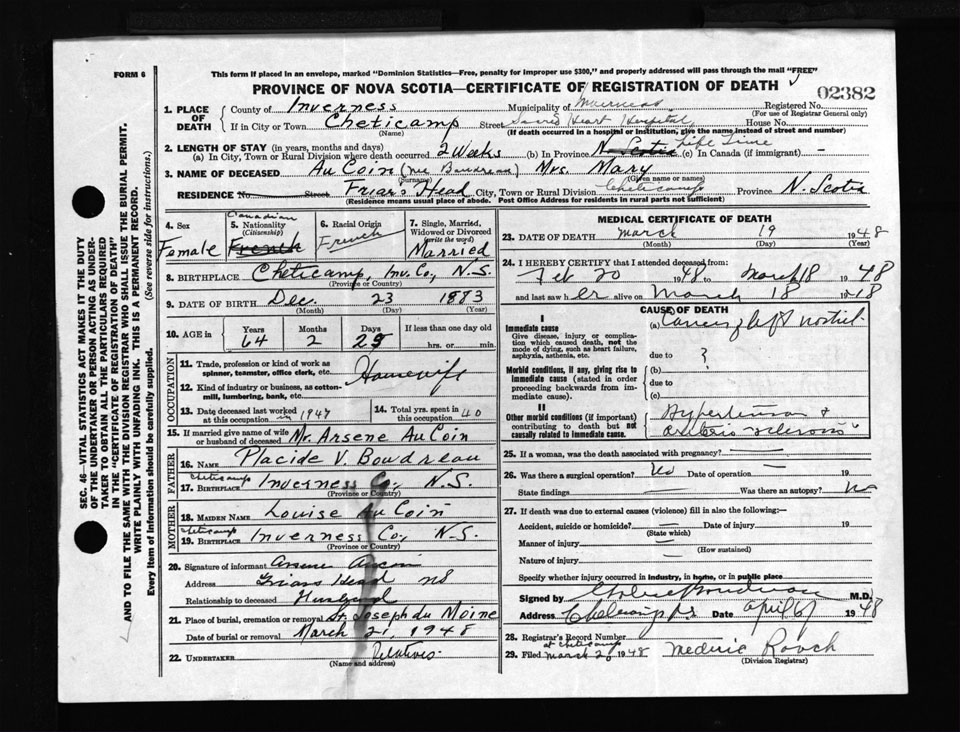 FORM 6
This form if placed in an envelope, marked "Dominion Statistics—Free, penalty for improper use $300," and properly addressed will pass through the mail "FREE"
PROVINCE OF NOVA SCOTIA—CERTIFICATE OF REGISTRATION OF DEATH
02382
1. PLACE OF DEATH County of Inverness Municipality of Inverness Registered No.
(For use of Registrar General only)
If in City or Town Cheticamp Street Sacred Heart Hospital House No.
(Name) (If death occurred in a hospital or institution, give the name instead of street and number)
2. LENGTH OF STAY (in years, months and days)
(a) In City, Town or Rural Division where death occurred 2 Weeks (b) In Province N. Scotia Life Time (c) In Canada (if immigrant) —
3. NAME OF DECEASED Au Coin (nee Boudreau) Mrs. Mary
(Surname) (Given name or names)
RESIDENCE No. Street Friar's Head City, Town or Rural Division Cheticamp Province N. Scotia
(Residence means usual place of abode. Post Office Address for residents in rural parts not sufficient)
4. Sex Female
5. Nationality (Citizenship) Canadian French
6. Racial Origin French
7. Single, Married, Widowed or Divorced (write the word) Married
8. BIRTHPLACE Cheticamp, Inv. Co., N.S.
(Province or Country)
9. DATE OF BIRTH Dec. 23 1883
(Month) (Day) (Year)
10. AGE in Years 64 Months 2 Days 25 If less than one day old
hrs. or min.
OCCUPATION
11. Trade, profession or kind of work as spinner, teamster, office clerk, etc. Housewife
12. Kind of industry or business, as cotton-mill, lumbering, bank, etc.
13. Date deceased last worked at this occupation in 1947
14. Total yrs. spent in this occupation 40
15. If married give name of wife or husband of deceased Mr. Arsene Au Coin
FATHER
16. NAME Placide V. Boudreau
17. BIRTHPLACE Cheticamp Inverness Co., N.S.
(Province or Country)
MOTHER
18. MAIDEN NAME Louise Au Coin
19. BIRTHPLACE Cheticamp Inverness Co., N.S.
(Province or Country)
20. Signature of informant Arsene Aucoin
Address Friars Head NS
Relationship to deceased Husband
21. Place of burial, cremation or removal St. Joseph du Moine
Date of burial or removal March 21, 1948
22. UNDERTAKER Relatives
(Name and address)
MEDICAL CERTIFICATE OF DEATH
23. DATE OF DEATH March 19 1948
(Month) (Day) (Year)
24. I HEREBY CERTIFY that I attended deceased from:
Feb 20 1948 to March 18 1948
and last saw her alive on March 18 1948
CAUSE OF DEATH
I
Immediate cause
Give disease, injury or complication which caused death, not the mode of dying, such as heart failure, asphyxia, asthenia, etc.
(a) Cancer of left nostril
due to ?
Morbid conditions, if any, giving rise to immediate cause (stated in order proceeding backwards from immediate cause).
(b)
due to
(c)
II
Other morbid conditions (if important) contributing to death but not causally related to immediate cause.
Hypertension &
arterio-sclerosis
25. If a woman, was the death associated with pregnancy? —
26. Was there a surgical operation? No Date of operation — 19
State findings — Was there an autopsy? No
27. If death was due to external causes (violence) fill in also the following:—
Accident, suicide or homicide? — Date of injury 19
(State which)
Manner of injury —
(How sustained)
Nature of injury —
Specify whether injury occurred in industry, in home, or in public place
Signed by M.D.
Address Cheticamp N.S. Date April 6 1948
28. Registrar's Record Number
at Cheticamp
29. Filed March 20 1948 Mederic Roach
(Division Registrar)
SEC. 46—VITAL STATISTICS ACT MAKES IT THE DUTY
OF THE UNDERTAKER OR PERSON ACTING AS UNDER-
TAKER TO OBTAIN ALL THE PARTICULARS REQUIRED
IN THE "CERTIFICATE OF REGISTRATION OF DEATH"
AND TO FILE THE SAME WITH THE DIVISION REGISTRAR WHO SHALL ISSUE THE BURIAL PERMIT.
WRITE PLAINLY WITH UNFADING INK. THIS IS A PERMANENT RECORD.
Every item of information should be carefully supplied. (See reverse side for instructions.)